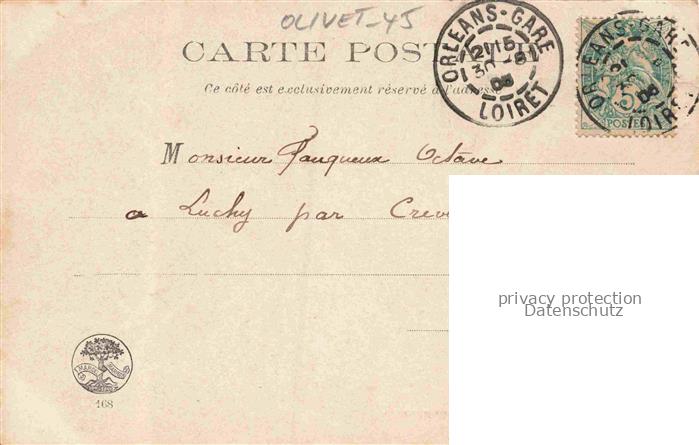 OLIVET-45
CARTE POST
Ce côté est exclusivement réservé à l'adresse
ORLEANS-GARE
21 15
30 -8
03
LOIRET
ORLEANS-GARE
LOIRET
5
POSTES
Monsieur Octave
a Luchy par Crev
privacy protection
Datenschutz
168